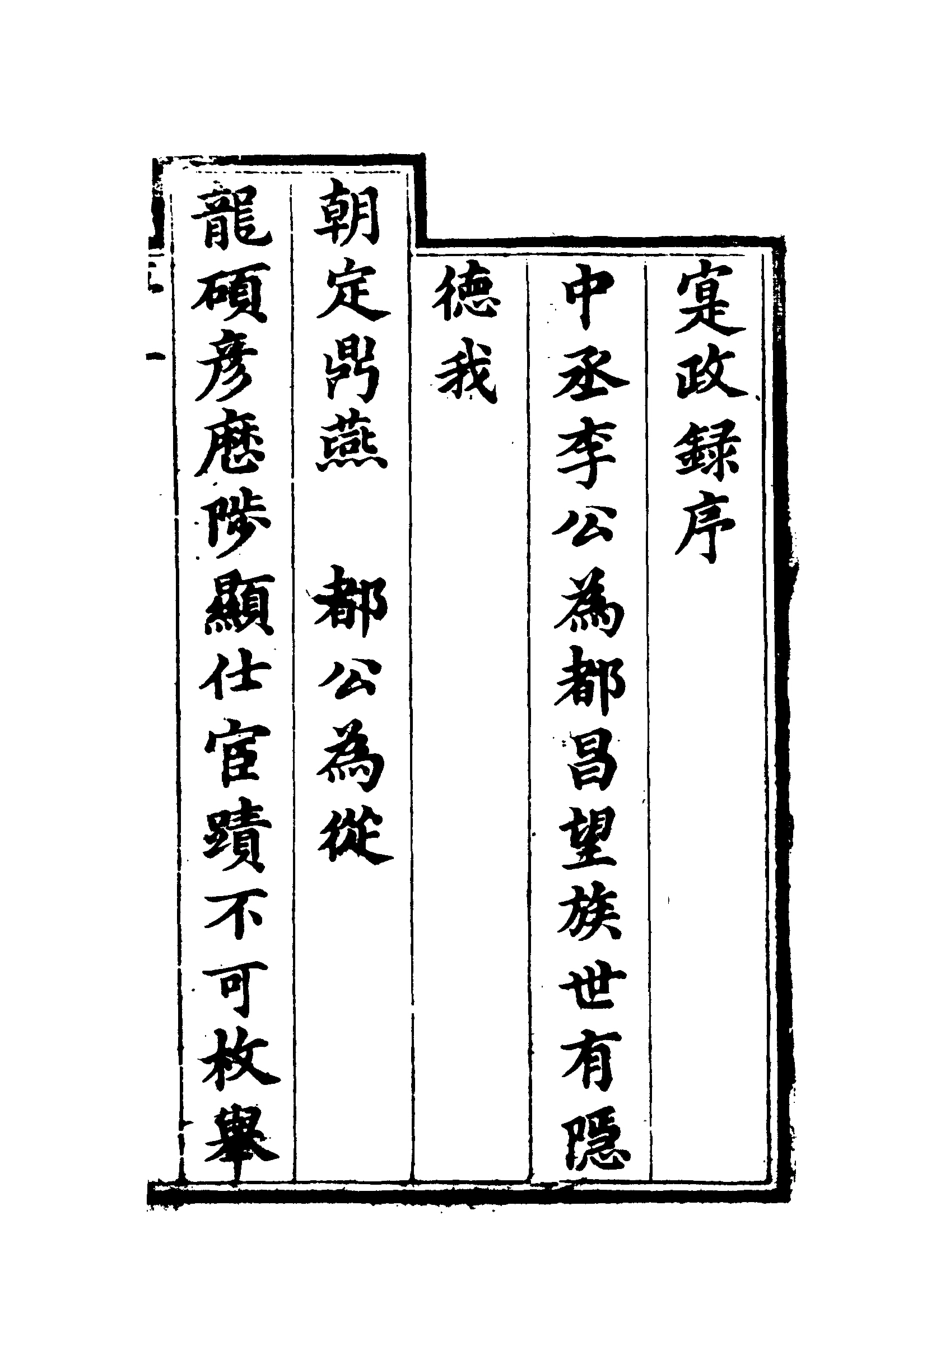 寔政録序
中丞李公為都昌望族世有隱
德我
朝定鼎燕　都公為從
龍碩彥歷陟顯仕宦蹟不可枚舉